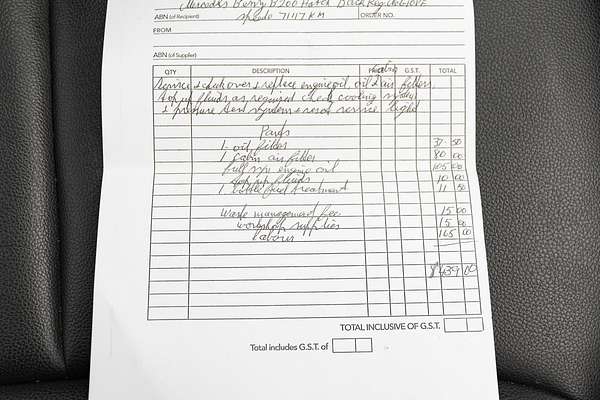 Mercedes Benz B200 Hatch Back Reg
ABN (of Recipient) speedo 71117 KM ORDER NO.
FROM
ABN (of Supplier)
QTY DESCRIPTION PRICE G.S.T. TOTAL
Service & check over & replace engine oil, oil & air filters,
top up fluids as required check cooling system
& pressure test system & reset service light
Parts
1 - oil filter 37 50
1 air filter 80 00
full syn engine oil 105 00
top up fluids 10 00
1 bottle fuel treatment 11 50
Waste management fee 15 00
workshop supplies 15 00
labour 165 00
$439 00
TOTAL INCLUSIVE OF G.S.T.
Total includes G.S.T. of